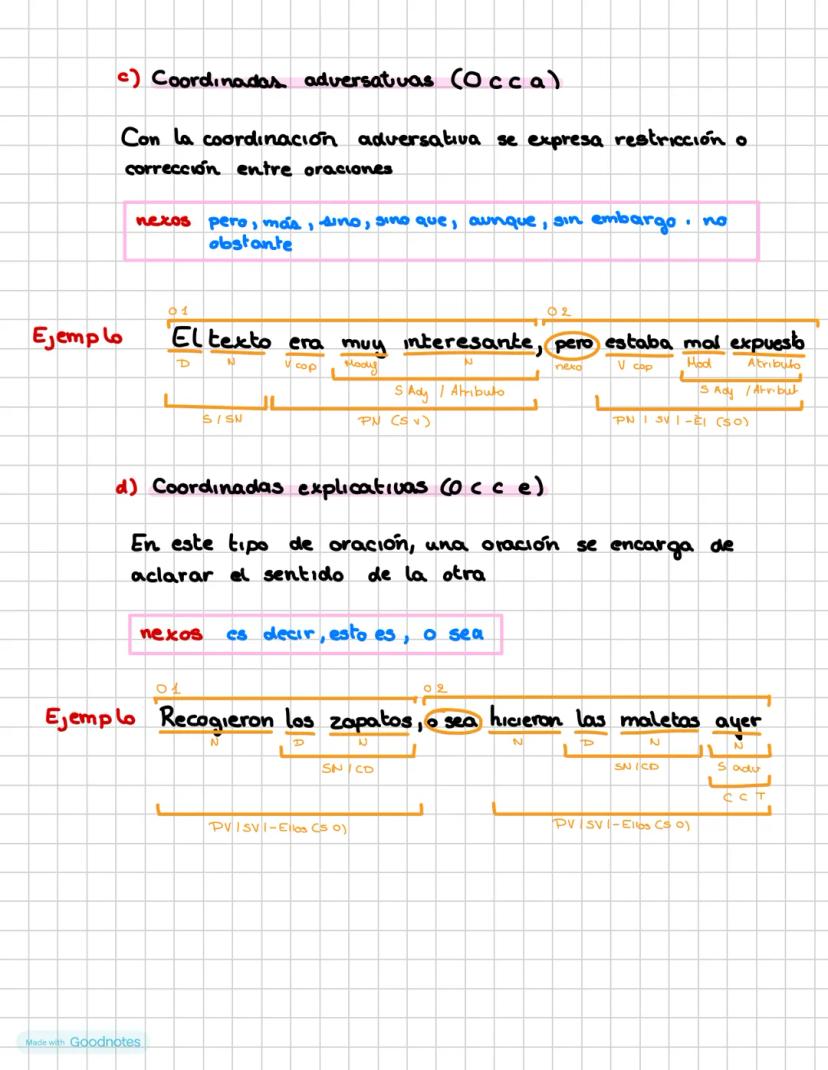 c) Coordinadas adversativas (O c c a)
Con la coordinación adversativa se expresa restricción o
corrección entre oraciones
nexos pero, más, sino, sino que, aunque, sin embargo, no
obstante
O1 O2
Ejemplo El texto era muy interesante, pero estaba mal expuesto
D N V cop Mody N nexo V cop Mod Atributo
S Adj / Atributo S Adj / Atribut
S / SN PN (S V) PN | SV | - Él (S O)
d) Coordinadas explicativas (O c c e)
En este tipo de oración, una oración se encarga de
aclarar el sentido de la otra
nexos es decir, esto es, o sea
O1 O2
Ejemplo Recogieron los zapatos, o sea hicieron las maletas ayer
N D N N D N N
SN / CD SN / CD S adv
C C T
PV | SV | - Ellos (S O) PV | SV | - Ellos (S O)
Made with Goodnotes